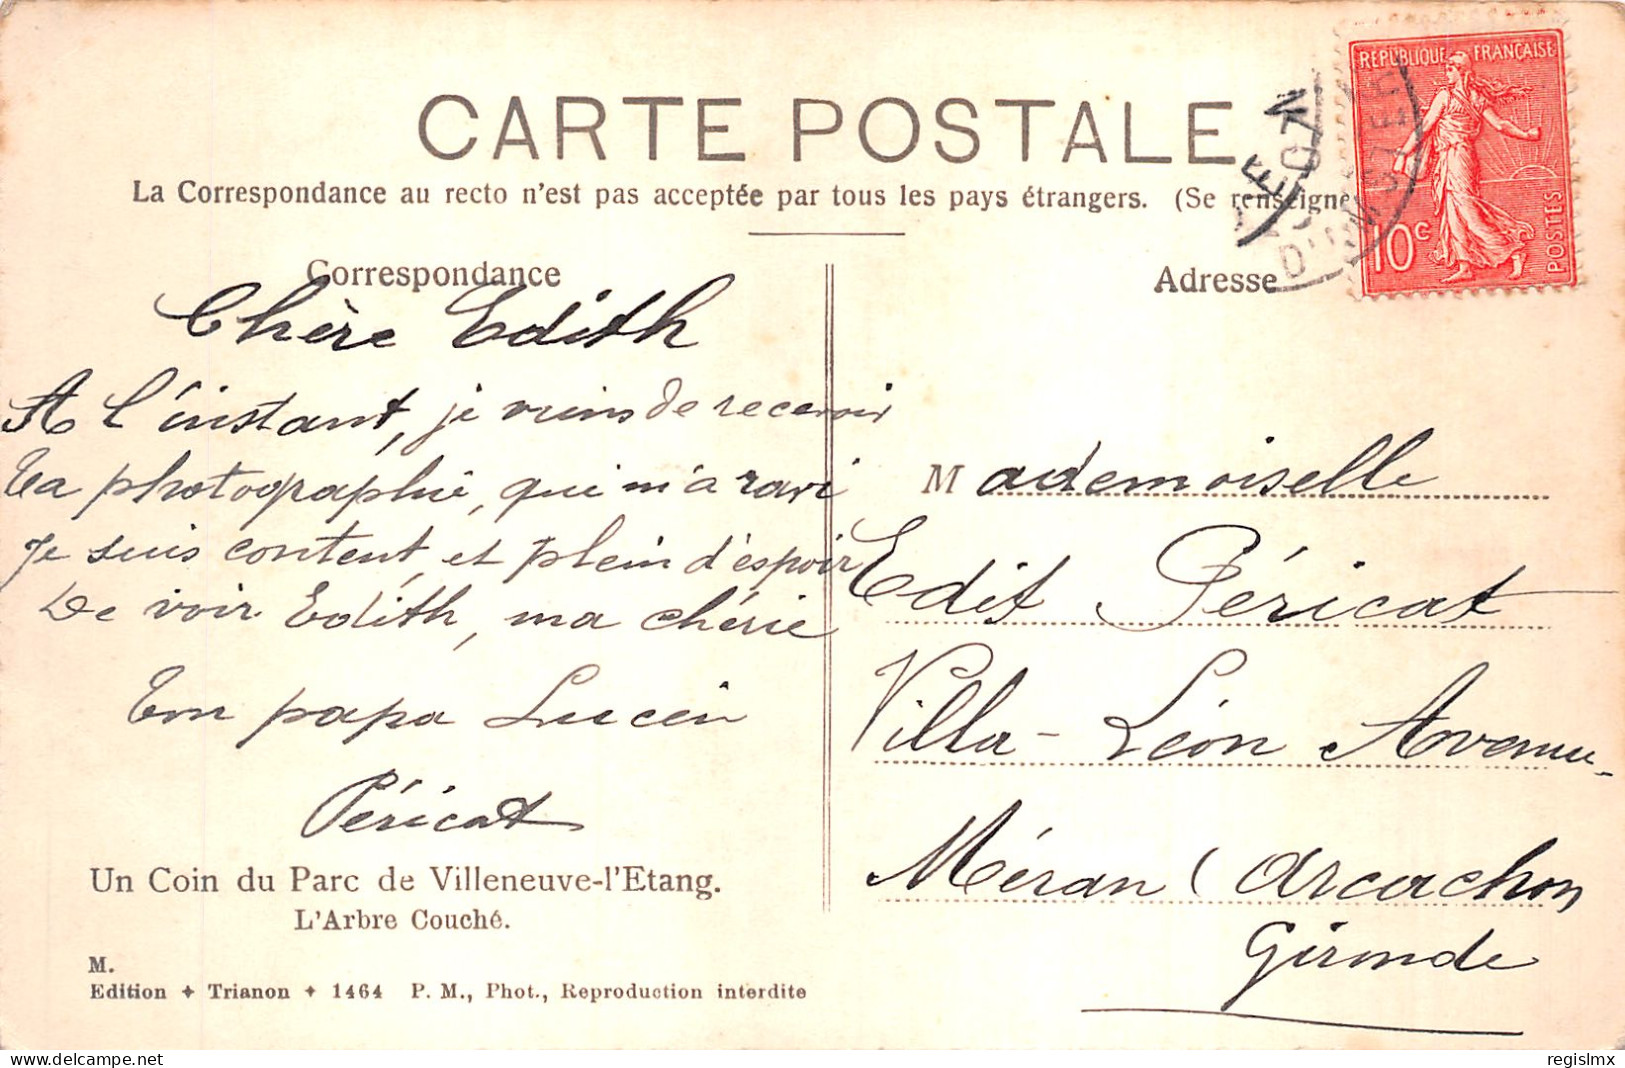 CARTE POSTALE
La Correspondance au recto n'est pas acceptée par tous les pays étrangers. (Se renseigne
REPUBLIQUE FRANÇAISE
10c
POSTES
Correspondance
Chère Edith
A l'instant, je viens de recevoir
Ta photographie, qui m'a ravi
Je suis content et plein d'espoir
De voir Edith, ma chérie
Ton papa Lucien
Péricat
Un Coin du Parc de Villeneuve-l'Etang.
L'Arbre Couché.
M.
Edition ✦ Trianon ✦ 1464 P. M., Phot., Reproduction interdite
Adresse
Mademoiselle
Edit Péricat
Villa-Léon Avenue
Méran (Arcachon
Gironde
delcampe.net
regislmx